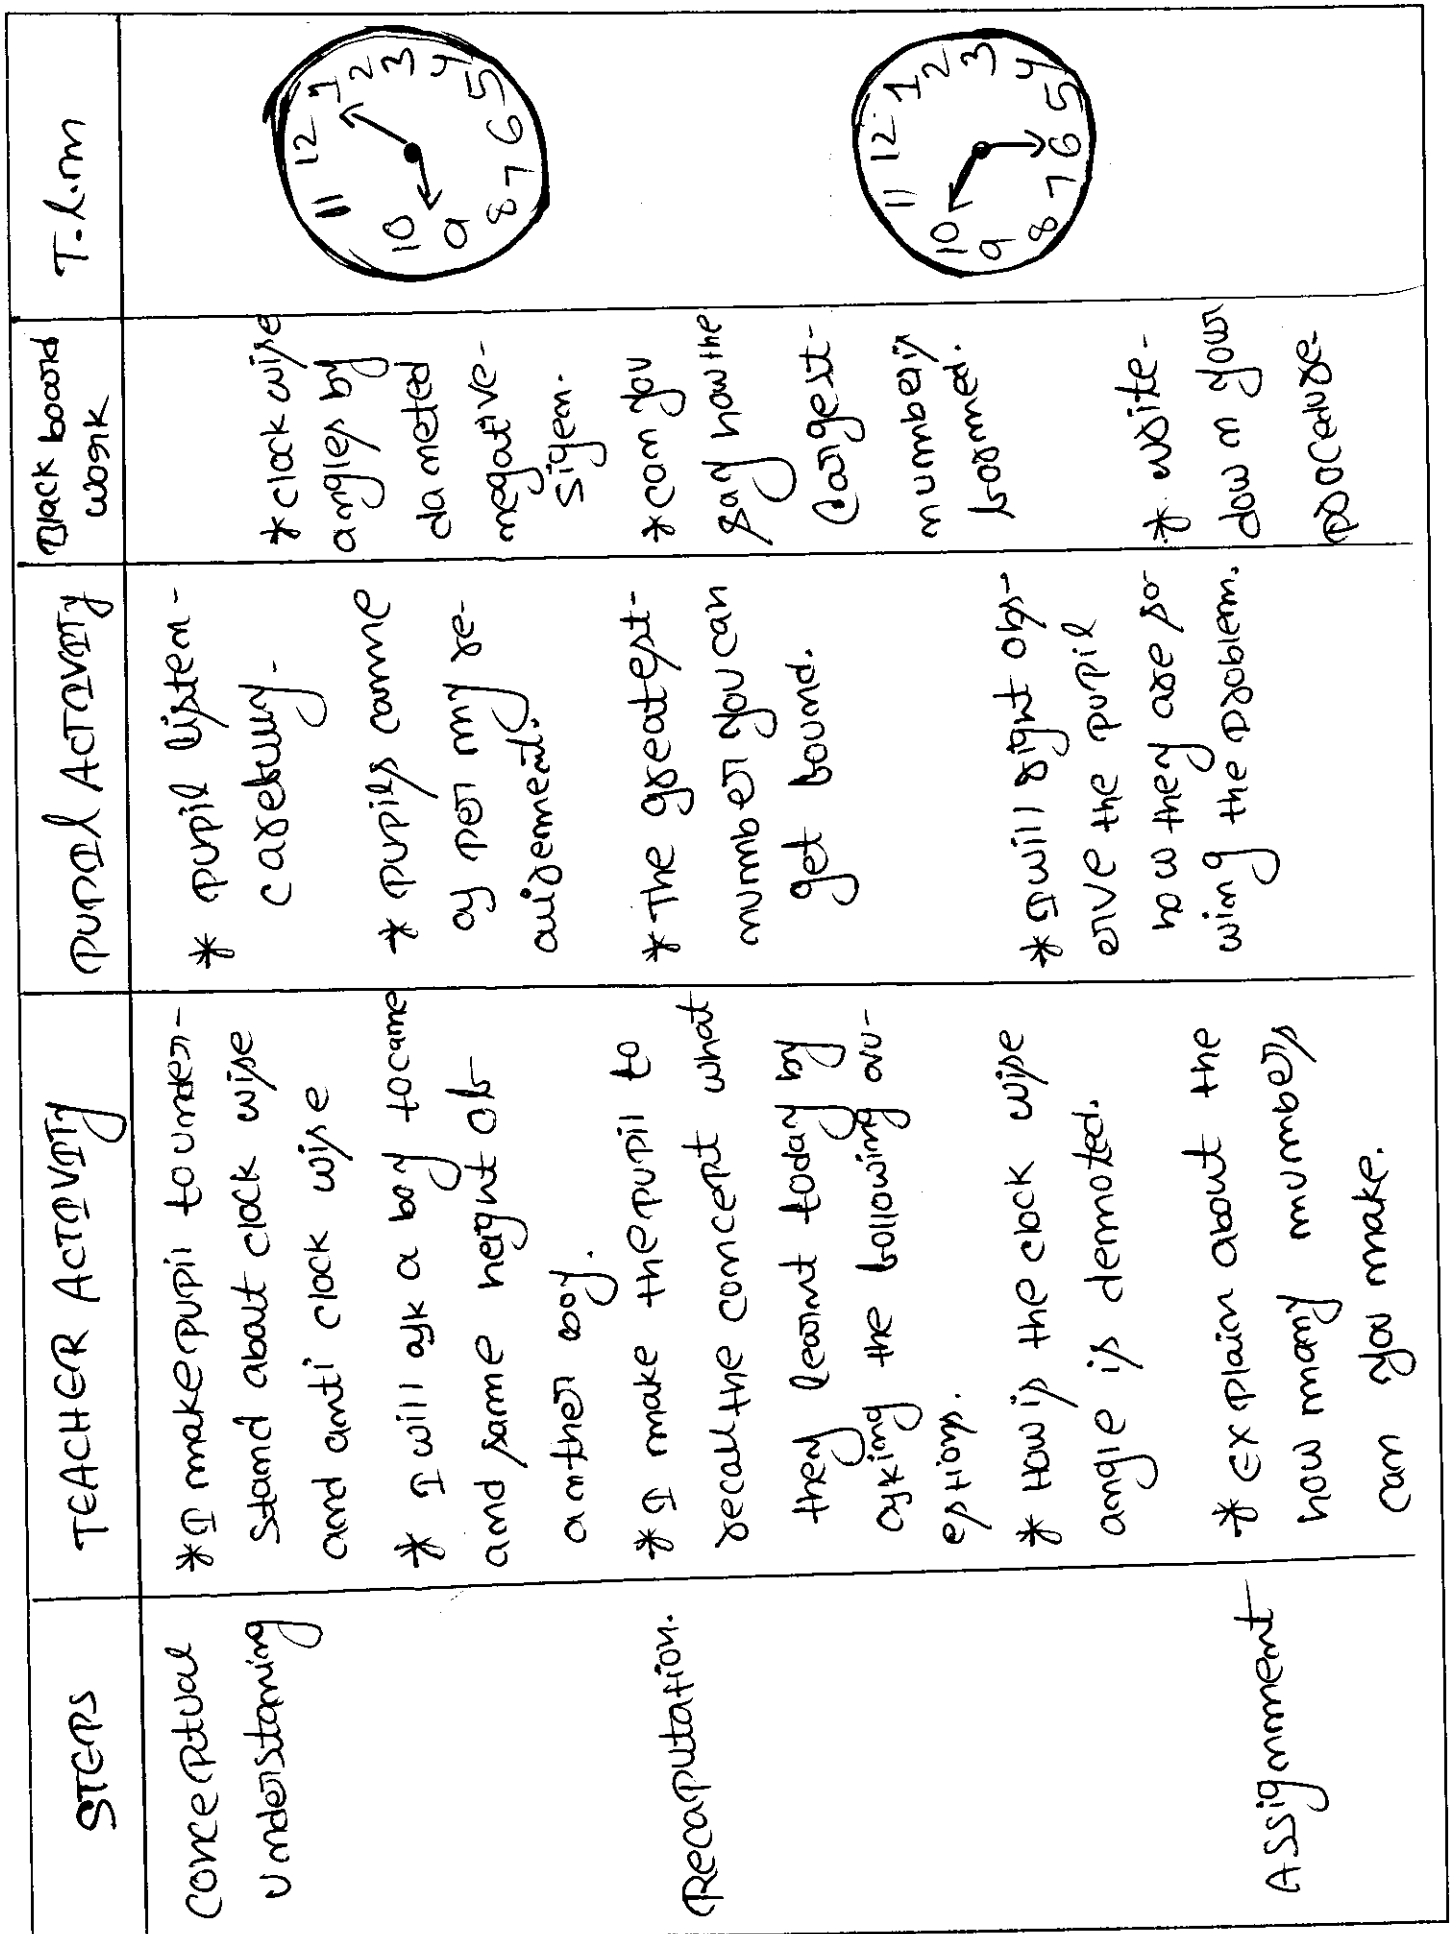 STEPS
TEACHER ACTIVITY
PUPIL ACTIVITY
Black board
work
T.l.m
conceptual
understaning
* I make pupil to under-
stand about clock wise
and anti clock wise
* I will ask a boy to came
and same height of
anther boy.
* pupil listen-
carefully.
* pupils came
as per my re-
quirement.
* clock wise
angles by
daneted
negative-
sigen.
12
1
2
3
4
5
6
7
8
9
10
11
Recaputation.
* I make the pupil to
recall the concept what
they learnt today by
asking the following qu-
estions.
* How is the clock wise
angle is denoted.
* The greatest-
number you can
get found.
* can you
say how the
largest-
number is
formed.
12
1
2
3
4
5
6
7
8
9
10
11
Assignment
* Explain about the
how many numbers
can you make.
* I will right obs-
erve the pupil
how they are so
wing the problem.
* write-
down your
procedure-